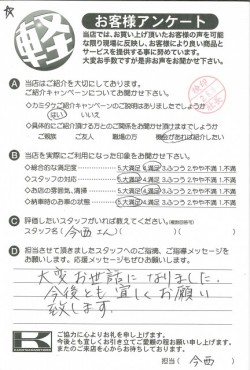 軽
お客様アンケート
当店では、お買い上げ頂いたお客様の声を可能
な限り現場に反映し、お客様により良い商品と
サービスを提供する事に努めています。
大変お手数ですが是非お声をお聞かせ下さい。
A 当店はご紹介を大切にしております。
ご紹介キャンペーンについてお聞かせ下さい。
◇カニタケご紹介キャンペーンのご説明はありましたでしょうか
はい いいえ
◇具体的にご紹介頂ける方とのご関係をお聞かせ頂けますでしょうか
ご親族 ご友人 職場の方 機会があれば紹介したい
B 当店を実際にご利用になった印象をお聞かせ下さい。
◇総合的な満足度 5.大満足 4.満足 3.ふつう 2.やや不満 1.不満
◇スタッフの対応 5.大満足 4.満足 3.ふつう 2.やや不満 1.不満
◇お店の雰囲気、清掃 5.大満足 4.満足 3.ふつう 2.やや不満 1.不満
◇納車時のお車の状態 5.大満足 4.満足 3.ふつう 2.やや不満 1.不満
C 評価したいスタッフがいれば教えてください。(複数回答可)
スタッフ名( 今西さん )( )
D 担当させて頂きましたスタッフへのご指摘、ご指導メッセージを
お願いします。応援メッセージもぜひお聞かせ下さい。
大変お世話になりました。
今後とも宜しくお願い
致します。
K
ご協力に心よりお礼を申し上げます。
今後とも宜しくお引き立てご愛顧の程お願い申し上げます。
またのご来店を心からお待ちしております。
担当( 今西 )